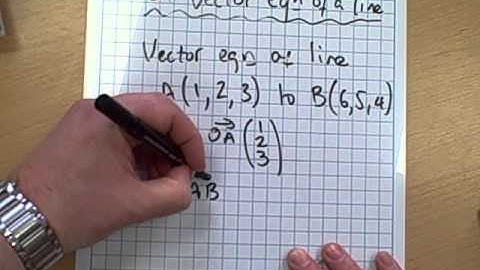 Vector eqn of a line
Vector eqn of line
A(1,2,3) to B(6,5,4)
OA (1
2
3)
AB